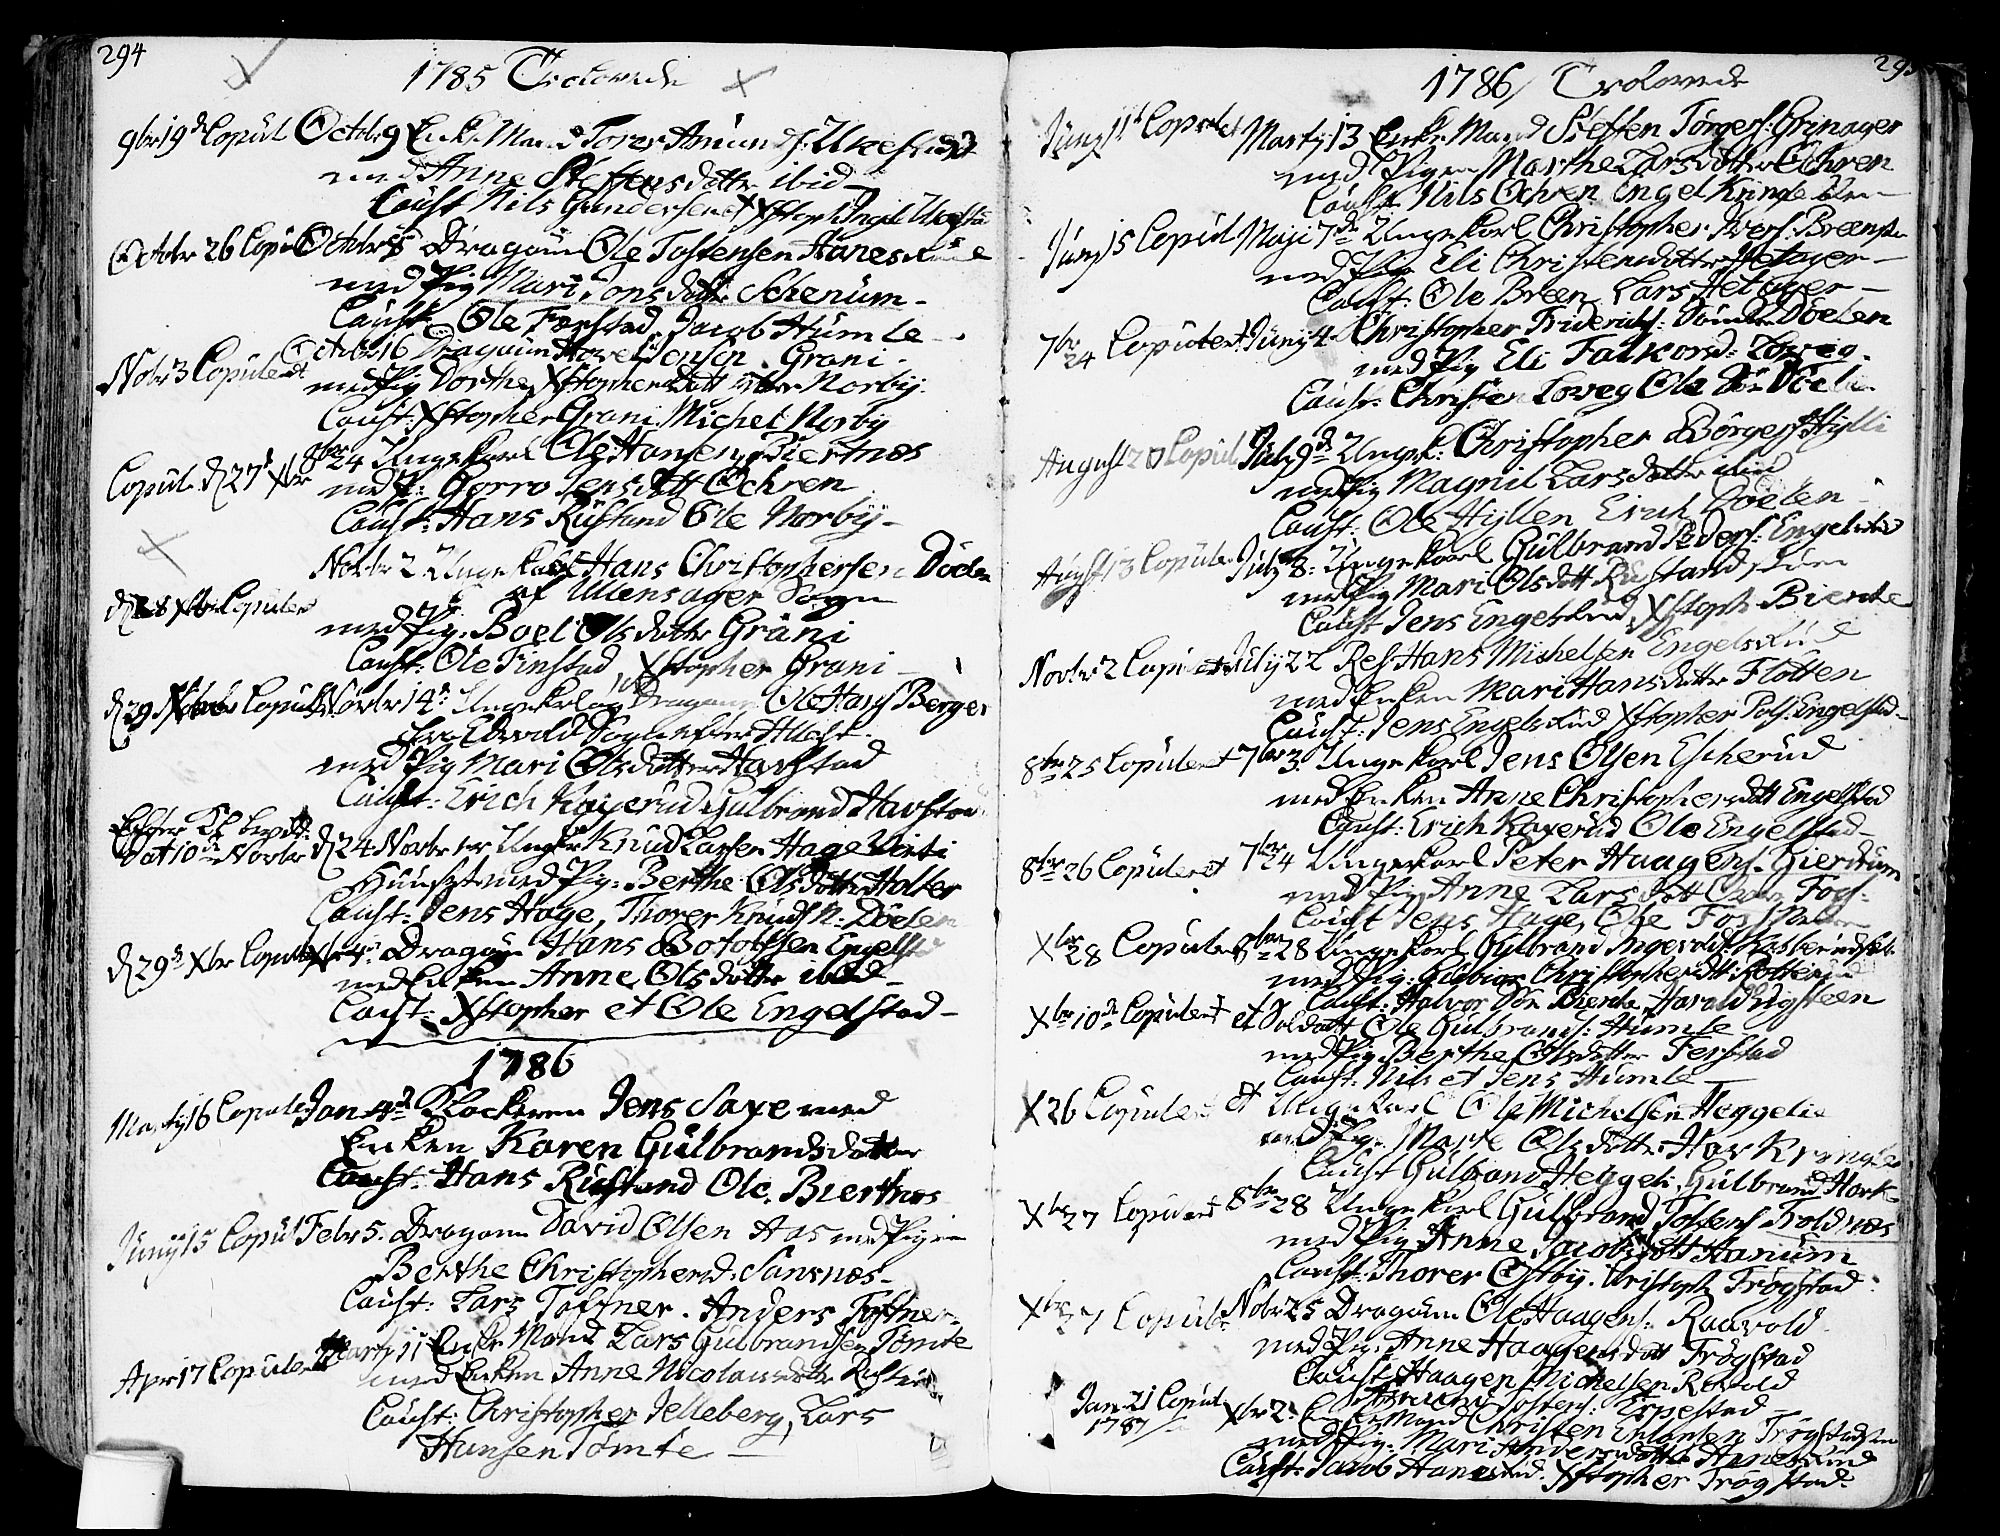 294
1785 Trolovede
9br 19d Copul Octobr 9 Enke Mand Torer Amunds:
med Anne Steffensdatter ibid
Caust Nils Gundersen Xstoph Ingel
Octobr 26 Copul Octobr 8 Dragoun Ole Tostensen Hanesrud
med Pig Mari Jonsdattr Schenum
Caust. Ole Færstad. Jacob Humle
Novbr 3 Copulert Octobr 16 Dragoun Hovel Jensen Grani
med Pig Dorthe Xstophersdatt Norby.
Caust: Xstopher Grani Michel Norby
Copul. d 27d Xbr 8br 24 Ungekarl Ole Hansen Biertnæs
med P: Gorro Jensdatt Ochren
Caust: Hans Rustand Ole Norby
Novbr 2 Ungekarl Hans Christophersen Döelen
af Ullensager Sogn
d 28 Xbr Copulert
med Pig. Boel Olsdatter Grani
Caust: Ole Finstad, Xstopher Grani
d 29 Xbr Copul Novbr 14d Ungekarl og Dragoun Ole Hans Berger
fra Edvold Sogn
med Pig Mari Olsdatter Harstad
Caust: Erich Kaxerud Gulbrand Harstad
Efter Kl. bevill:
dat 10de Novbr d 24 Novbr Ungkr Knud Larsen Hage
med Pig: Berthe Olsdattr Holter
Caust: Jens Hage, Thorer Knuds N: Döelen
d 29d Xbr Copul Xbr 4d. Dragoun Hans Botolfsen Engelstad
med Enken Anne Olsdatter ibid
Caust: Xstopher et Ole Engelstad
1786
Marty 16 Copulert Jan 4d Klockeren Jens Saxe med
Enken Karen Gulbrandsdatter
Caust: Hans Rustand Ole Biertnæs
Juny 15 Copul Febr 5. Dragoun David Olsen Aas med Pigen
Berthe Christophersd: Sansnæs
Caust: Lars Toffner. Anders Toffner
Apr 17 Copulert Marty 11 Enke Mand Lars Gulbrandsen Tömte
med Enken Anne Nicolausdattr
Caust: Christopher Jelleberg, Lars
Hansen Tömte
295
1786 Trolovede
Juny 11d Copulert Marty 13 Enke Mand Steffen Törgers: Grinager
med Pigen Marthe Larsdatter Ochren
Caust. Nils Ochren Engel
Juny 15 Copul Maji 7de Ungekarl Christopher Ivers: Breen
med Pig Eli Christensdatter Hetager
Caust: Ole Breen Lars Hetager
7br 24 Copulert Juny 4. Christopher Friderichs: Döelen
med Pig Eli Falkord: Loveg.
Caust: Christen Loveg Ole Döelen
August 20 Copul July 9d Ungk: Christopher Börgers Hylli
med Pig Magnil Larsdatter ibid
Caust: Ole Hyllen Erich Döelen
Augst 13 Copulert July 8: Ungekarl Gulbrand Peders: Engelsrud
med Pig Mari Olsdatt Rustand
Caust Jens Engelsrud, Xstoph Biercke
Novbr 2 Copulert July 22 Res Hans Michelsen Engelsrud
med Enken Mari Hansdatter Flotten
Caust: Jens Engelsrud Xstopher Pols: Engelstad
8br 25 Copulert 7br 3. Ungekarl Jens Olsen Escherud
med Enken Anne Christophersdatt Engelstad
Caust: Erich Kaxerud Ole Engelstad
8br 26 Copuleret 7br 24 Ungekarl Peter Haagens: Gierdrum
med Pig Anne Larsdatt
Caust Jens Hage, Ole
Xbr 28 Copulert 8br 28 Ungekarl Gulbrand Ingevolds
med Pig: Gubior Christophersdt
Caust: Halvor Biercke, Harald Ugsteen
Xbr 10de Copulert et Soldatt Ole Gulbrands: Humle
med Pig Berthe Olsdatter Ferstad
Caust: Nils et Jens Humle
X 26 Copulert et Ungekarl Ole Michelsen Heggeli
med Pig: Marte Olsdatter Harkringle
Caust Gulbrand Heggeli, Gulbrand Hark-
Xbr 27 Copulert 8br 28 Ungekarl Gulbrand Tostens Troldnæs
med Pig Anne Jacobsdatt Hanum
Caust: Thorer Ostby. Christoph Trögstad.
Xbr 27 Copul Nobr 25 Dragoun Ole Haagens: Raavold
med Pig. Anne Haagensdatt Trögstad
Caust Haagen Michelsen Rovold
Tostens: Erpestad
Jan. 21 Copul
1787
Xbr 2. Enke Mand Christen Trögstad
med Pig: Mari Andersdatter Hanesrud
Caust: Jacob Hanesrud. Xstopher Trögstad.